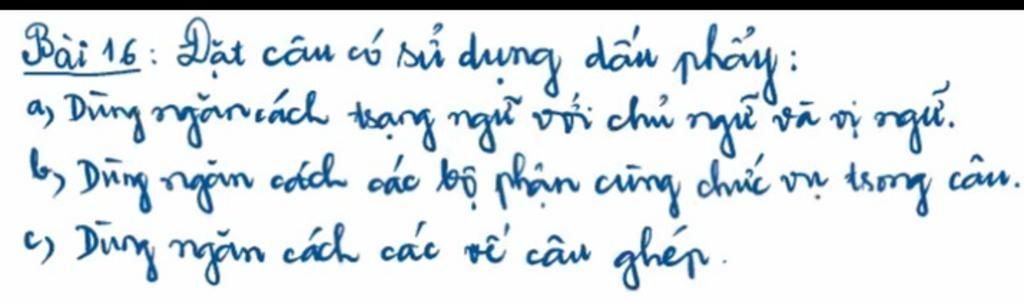 Bài 16: Đặt câu có sử dụng dấu phẩy:
a, Dùng ngăn cách trạng ngữ với chủ ngữ và vị ngữ.
b, Dùng ngăn cách các bộ phận cùng chức vụ trong câu.
c, Dùng ngăn cách các vế câu ghép.